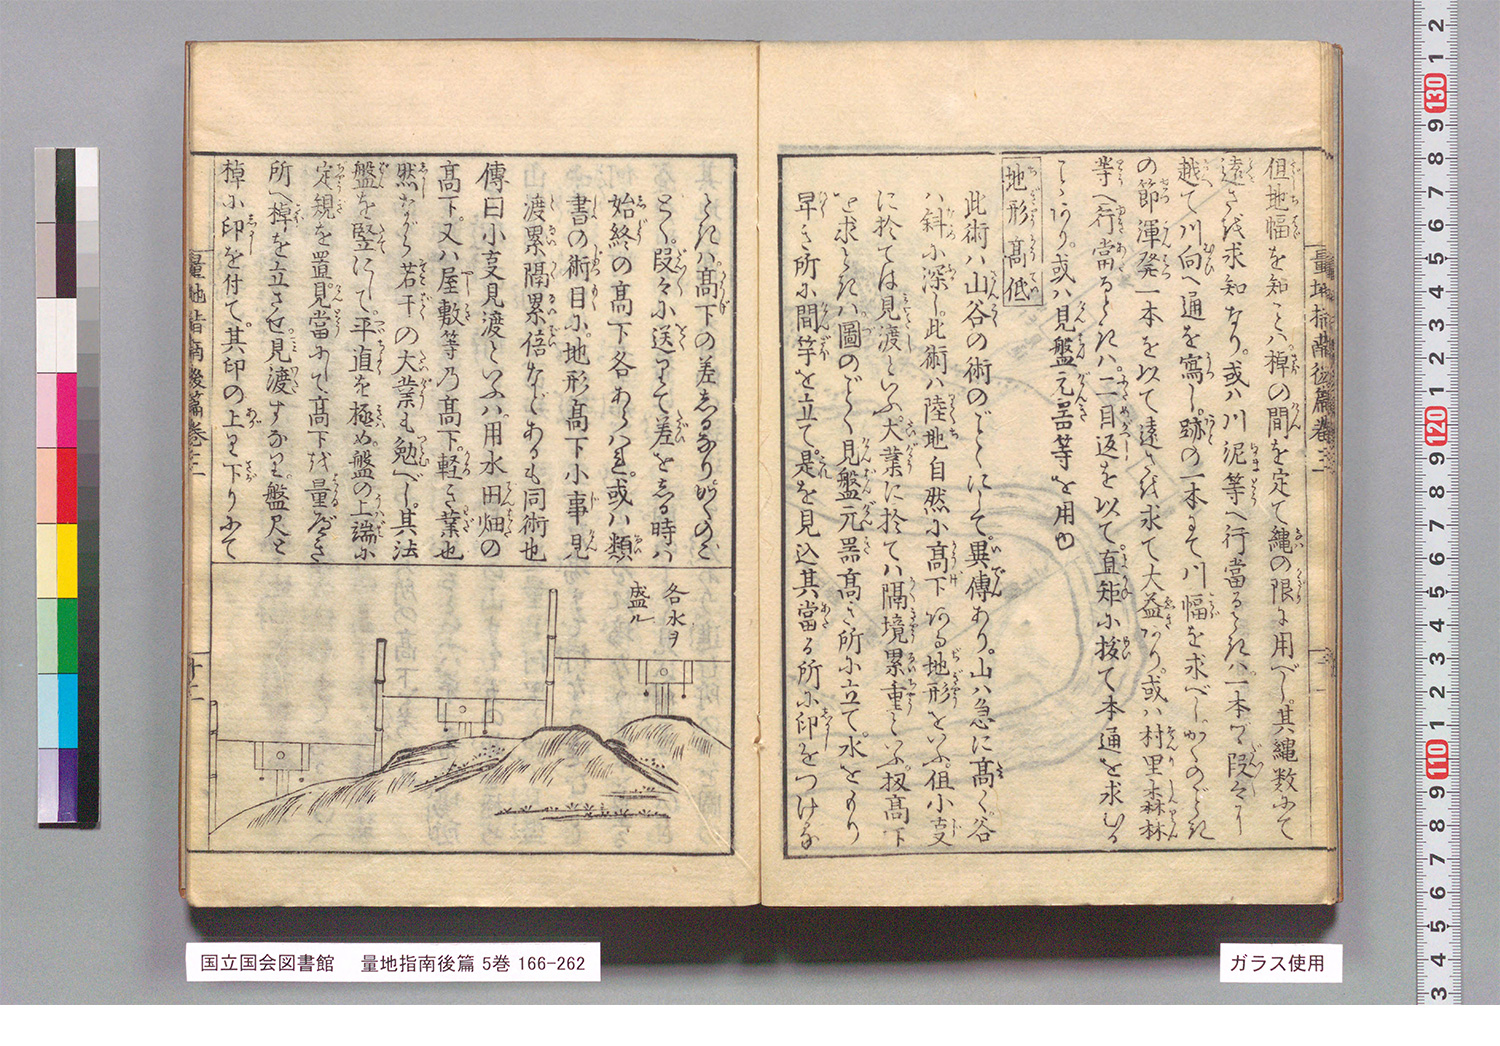 但地幅を知ことハ棹の間を定て縄の限に用べし其縄数にて
遠さを求知なり或ハ川泥等へ行當るときハ一本づゝ段々に
越て川向へ通を寫し跡の一本にて川幅を求べしかくのごとき
の節渾発一本を以て遠さを求て大益あり或ハ村里森林
等へ行當るときハ二目返を以て直矩に抜て本通を求むる
ことあり或ハ見盤元器等を用ゆ
地形高低
此術ハ山谷の術のごとくにして異傳あり山ハ急に高く谷
ハ斜に深し此術ハ陸地自然に高下ある地形をいふ但小支
に於ては見渡といふ大業に於てハ隔境累重といふ扨高下
を求るときハ圖のごとく見盤元器高き所に立て水をもり
早き所に間竿を立て是を見込其當る所に印をつけな
ときハ高下の差しるゝなりかくのご
とく段々に送りて差をしる時ハ
始終の高下各あらハる或ハ類
書の術目に地形高下小事見
渡累隔累倍などあるも同術也
傳曰小支見渡といふハ用水田畑の
高下又ハ屋敷等の高下軽き業也
然ながら若干の大業も勉べし其法
盤を竪にして平直を極め盤の上端に
定規を置見當にて高下を量べき
所へ棹を立させ見渡すなり盤尺と
棹に印を付て其印の上り下りにて
各水ヲ
盛ル
量地指南後篇巻三
十二
国立国会図書館 量地指南後篇 5巻 166-262
ガラス使用